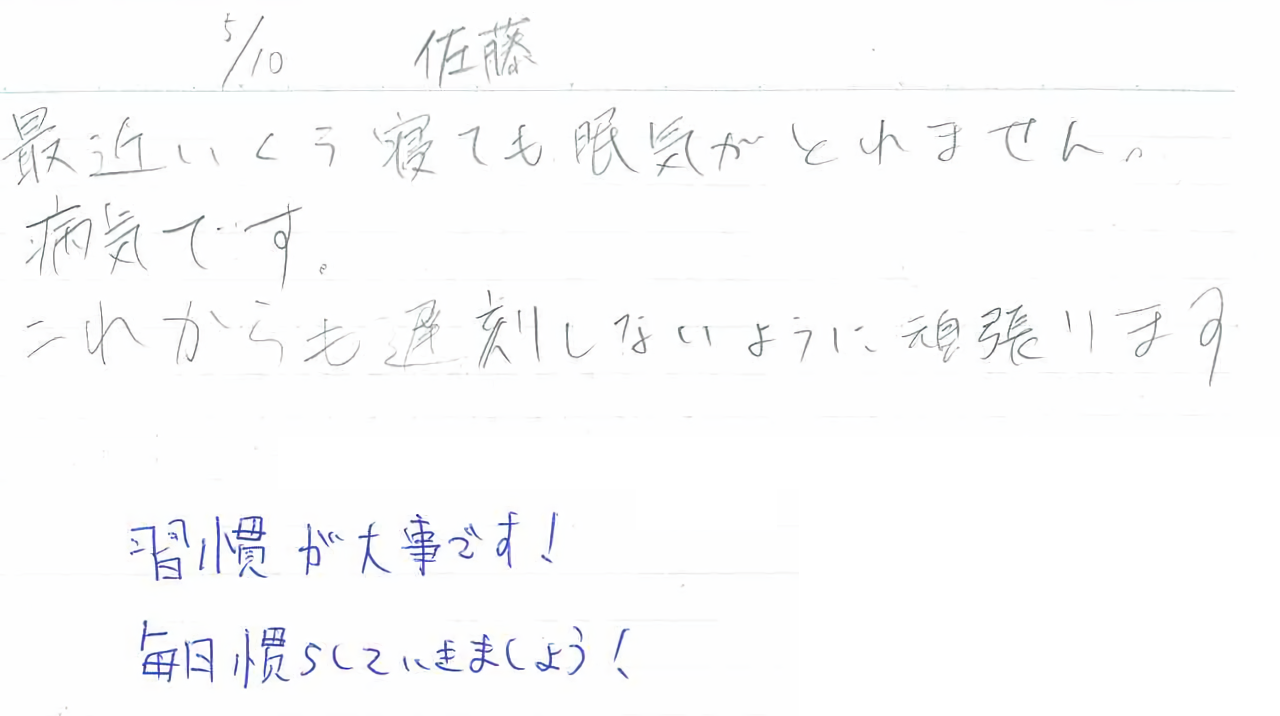 5/10 佐藤
最近いくら寝ても眠気がとれません。
病気です。
これからも遅刻しないように頑張ります
習慣が大事です！
毎日慣らしていきましょう！